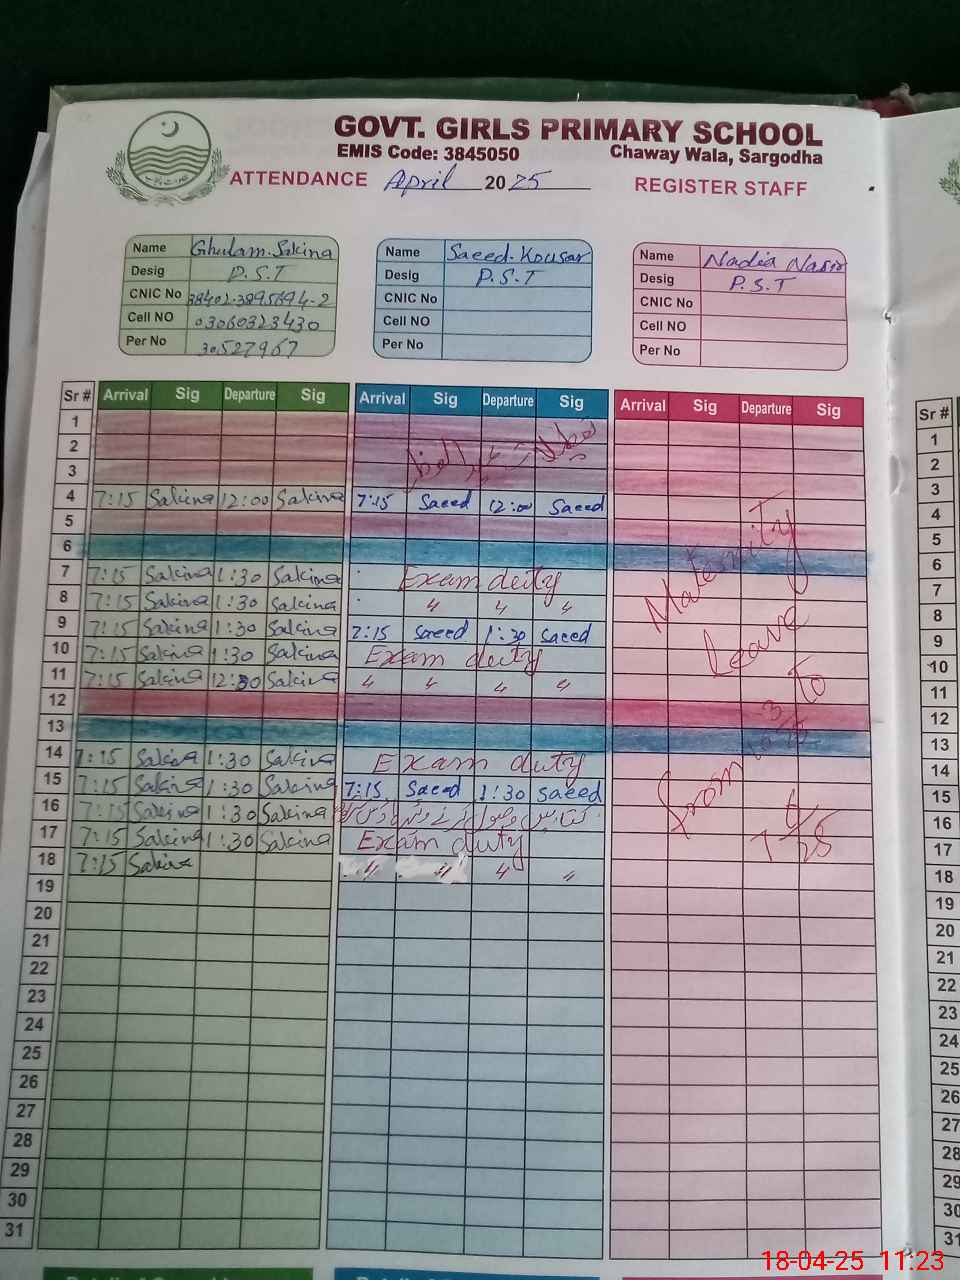 GOVT. GIRLS PRIMARY SCHOOL
EMIS Code: 3845050 Chaway Wala, Sargodha
ATTENDANCE April 2025 REGISTER STAFF
Name Ghulam Sakina Name Saeed Kousar Name Nadia Nasir
Desig P.S.T Desig P.S.T Desig P.S.T
CNIC No CNIC No CNIC No
Cell NO 03060323430 Cell NO Cell NO
Per No 30527967 Per No Per No
Sr # Arrival Sig Departure Sig Arrival Sig Departure Sig Arrival Sig Departure Sig Sr #
1 1
2 تعطیلات عید الفطر 2
3 3
4 7:15 Sakina 12:00 Sakina 7:15 Saeed 12:00 Saeed 4
5 5
6 Maternity 6
7 7:15 Sakina 1:30 Sakina Exam deuty 7
8 7:15 Sakina 1:30 Sakina " " " 8
9 7:15 Sakina 1:30 Sakina 7:15 Saeed 1:30 Saeed Leave 9
10 7:15 Sakina 1:30 Sakina Exam duty 10
11 7:15 Sakina 12:30 Sakina " " " " 11
12 to 12
13 13
14 7:15 Sakina 1:30 Sakina Exam duty From 14
15 7:15 Sakina 1:30 Sakina 7:15 Saeed 1:30 Saeed 15
16 7:15 Sakina 1:30 Sakina کتابیں وصول 16
17 7:15 Sakina 1:30 Sakina Exam duty 17
18 7:15 Sakina " " " " 18
19 19
20 20
21 21
22 22
23 23
24 24
25 25
26 26
27 27
28 28
29 29
30 30
31 31
18-04-25 11:23